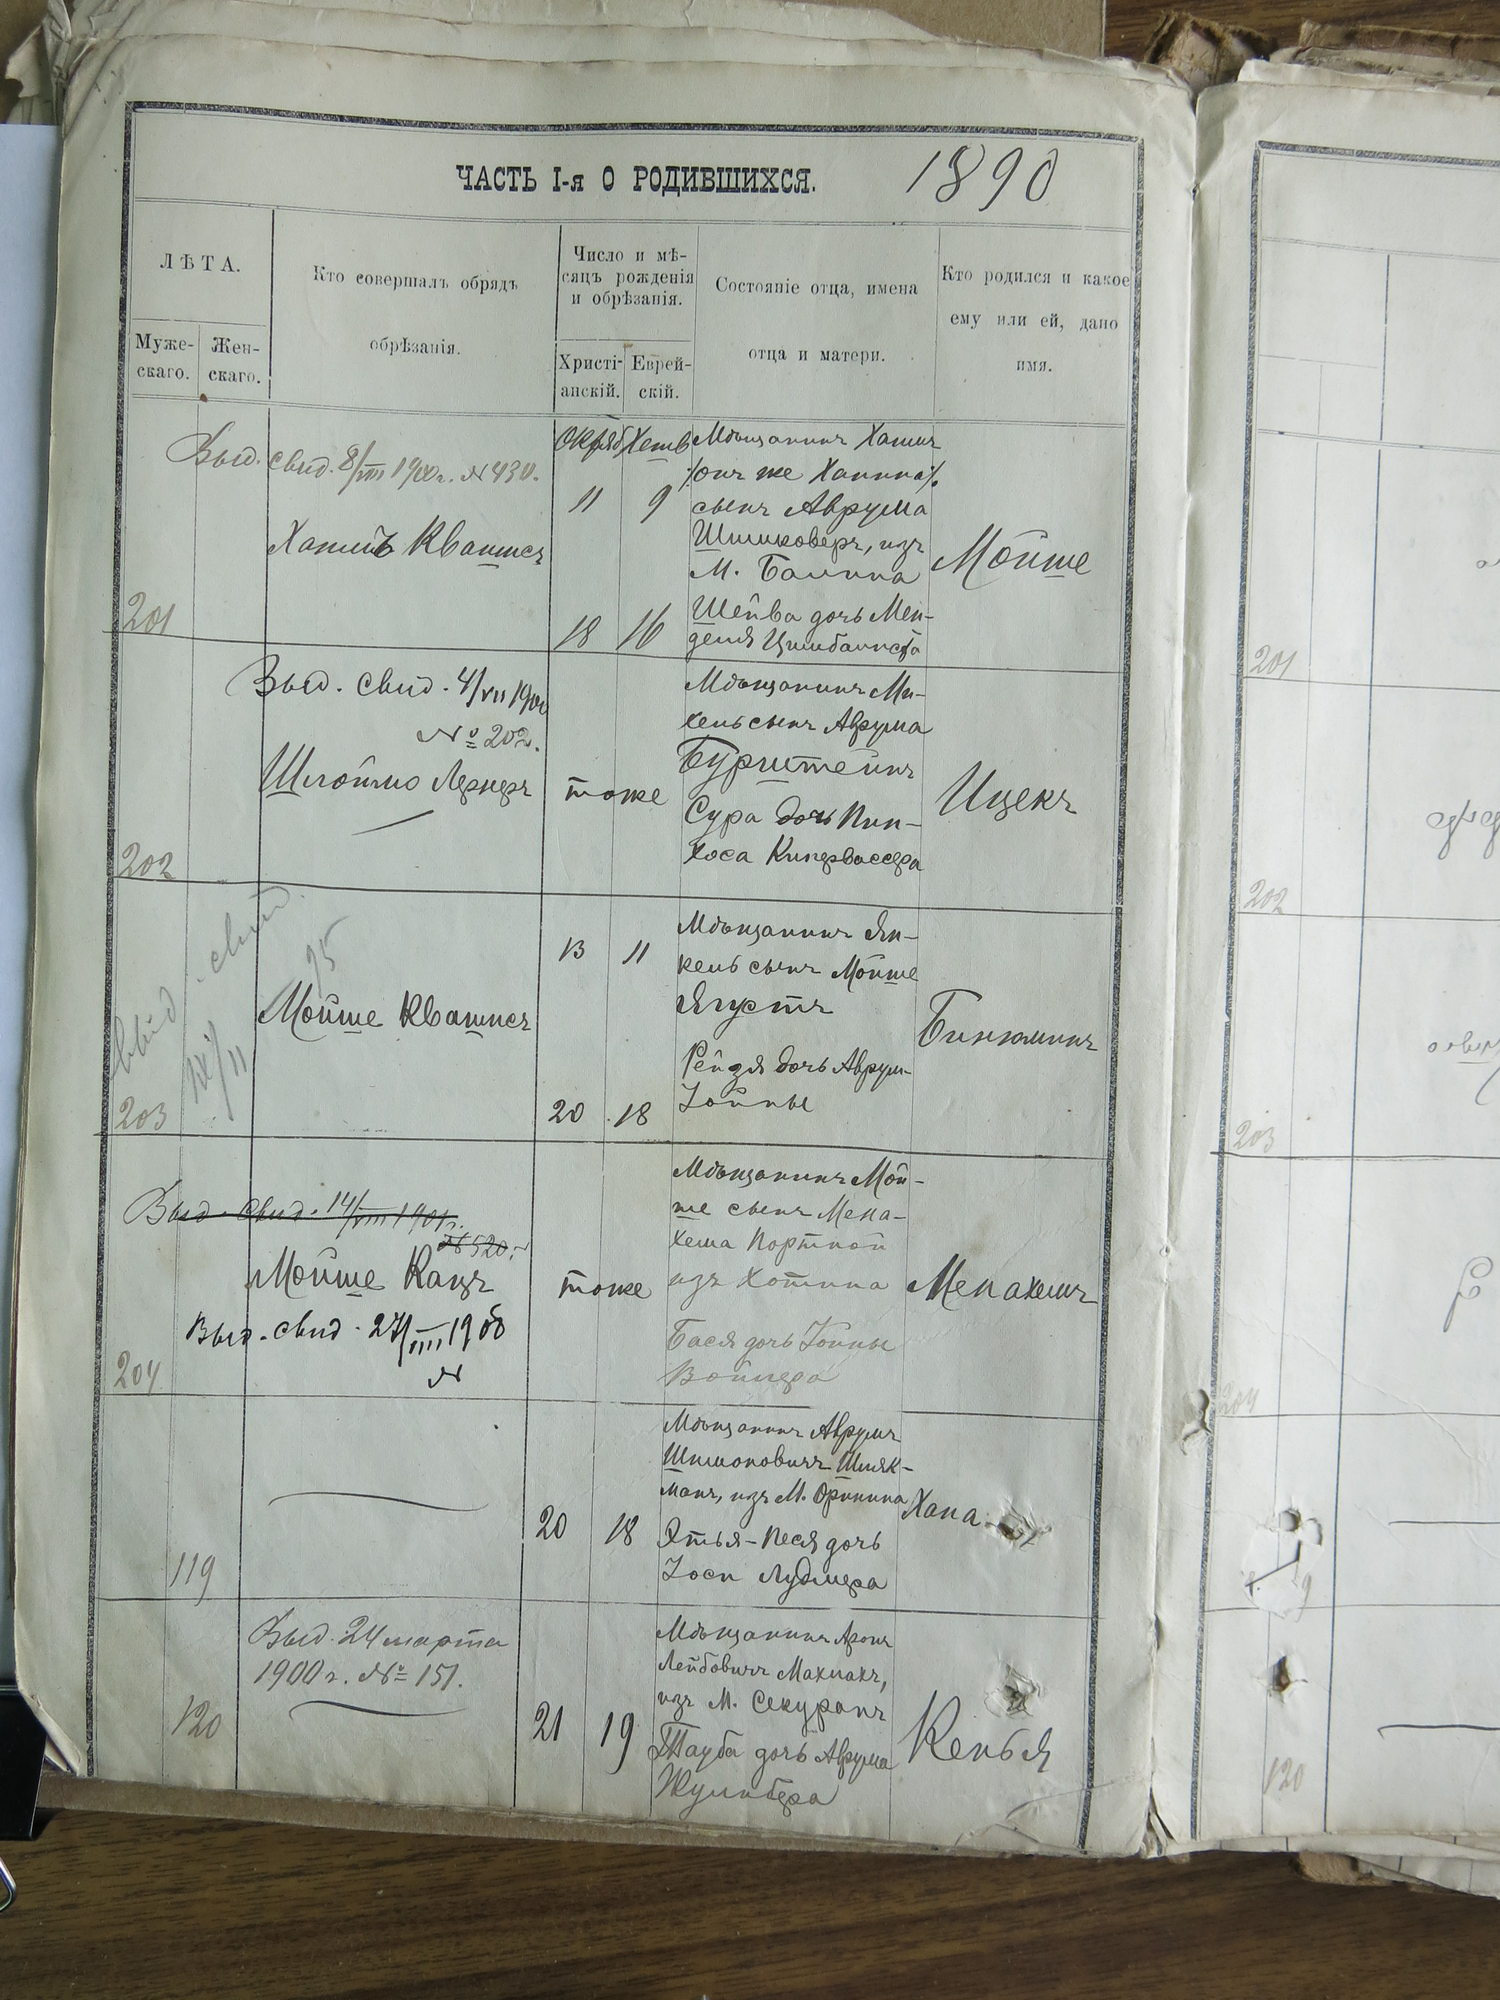 ЧАСТЬ I-я О РОДИВШИХСЯ.
1890
ЛѢТА.
Муже-
скаго.
Жен-
скаго.
Кто совершалъ обрядъ
обрѣзанія.
Число и мѣ-
сяцъ рожденія
и обрѣзанія.
Христі-
анскій.
Еврей-
скій.
Состояніе отца, имена
отца и матери.
Кто родился и какое
ему или ей, дано
имя.
Выд. свид. 8/VIII 1900г. № 430.
Хаимъ Квашисъ
201
Октяб
11
18
9
16
Мѣщанинъ Хаимъ
/:онъ же Ханина:/
сынъ Аврума
Шишковеръ, изъ
М. Балина
Шейва дочь Мен-
деля Цимбалиста
Мойше
Выд. свид. 4/VII 1900
№ 202.
Шлоймо Лернеръ
202
тоже
Мѣщанинъ Ми-
хель сынъ Аврума
Бурштейнъ
Сура дочь Пин-
хоса Кинервассера
Ицекъ
Выд. свид.
95
Мойше Квашисъ
203
13
20
11
18
Мѣщанинъ Ян-
кель сынъ Мойше
Ягустъ
Рейзя дочь Аврум-
Іойны
Бинюминъ
Выд. свид. 14/VIII 1901г.
№ 520.
Мойше Кацъ
Выд. свид. 27/VIII 1906
№
204
тоже
Мѣщанинъ Мой-
ше сынъ Мена-
хема Портной
изъ Хотина
Бася дочь Іойны
Войнера
Менахемъ
119
20
18
Мѣщанинъ Аврумъ
Шимоновичъ Шляк-
манъ, изъ М. Оринина
Этья-Песя дочь
Іоси Лудмера
Хана
Выд. 24 марта
1900 г. № 151.
120
21
19
Мѣщанинъ Аронъ
Лейбовичъ Махлахъ,
изъ М. Секуранъ
Тауба дочь Аврума
Жулибера
Кенья
201
202
203
204
120